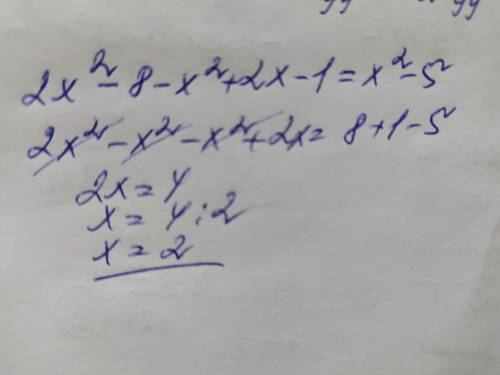 2x² - 8 - x² + 2x - 1 = x² - 5
2x² - x² - x² + 2x = 8 + 1 - 5
2x = 4
x = 4 : 2
x = 2